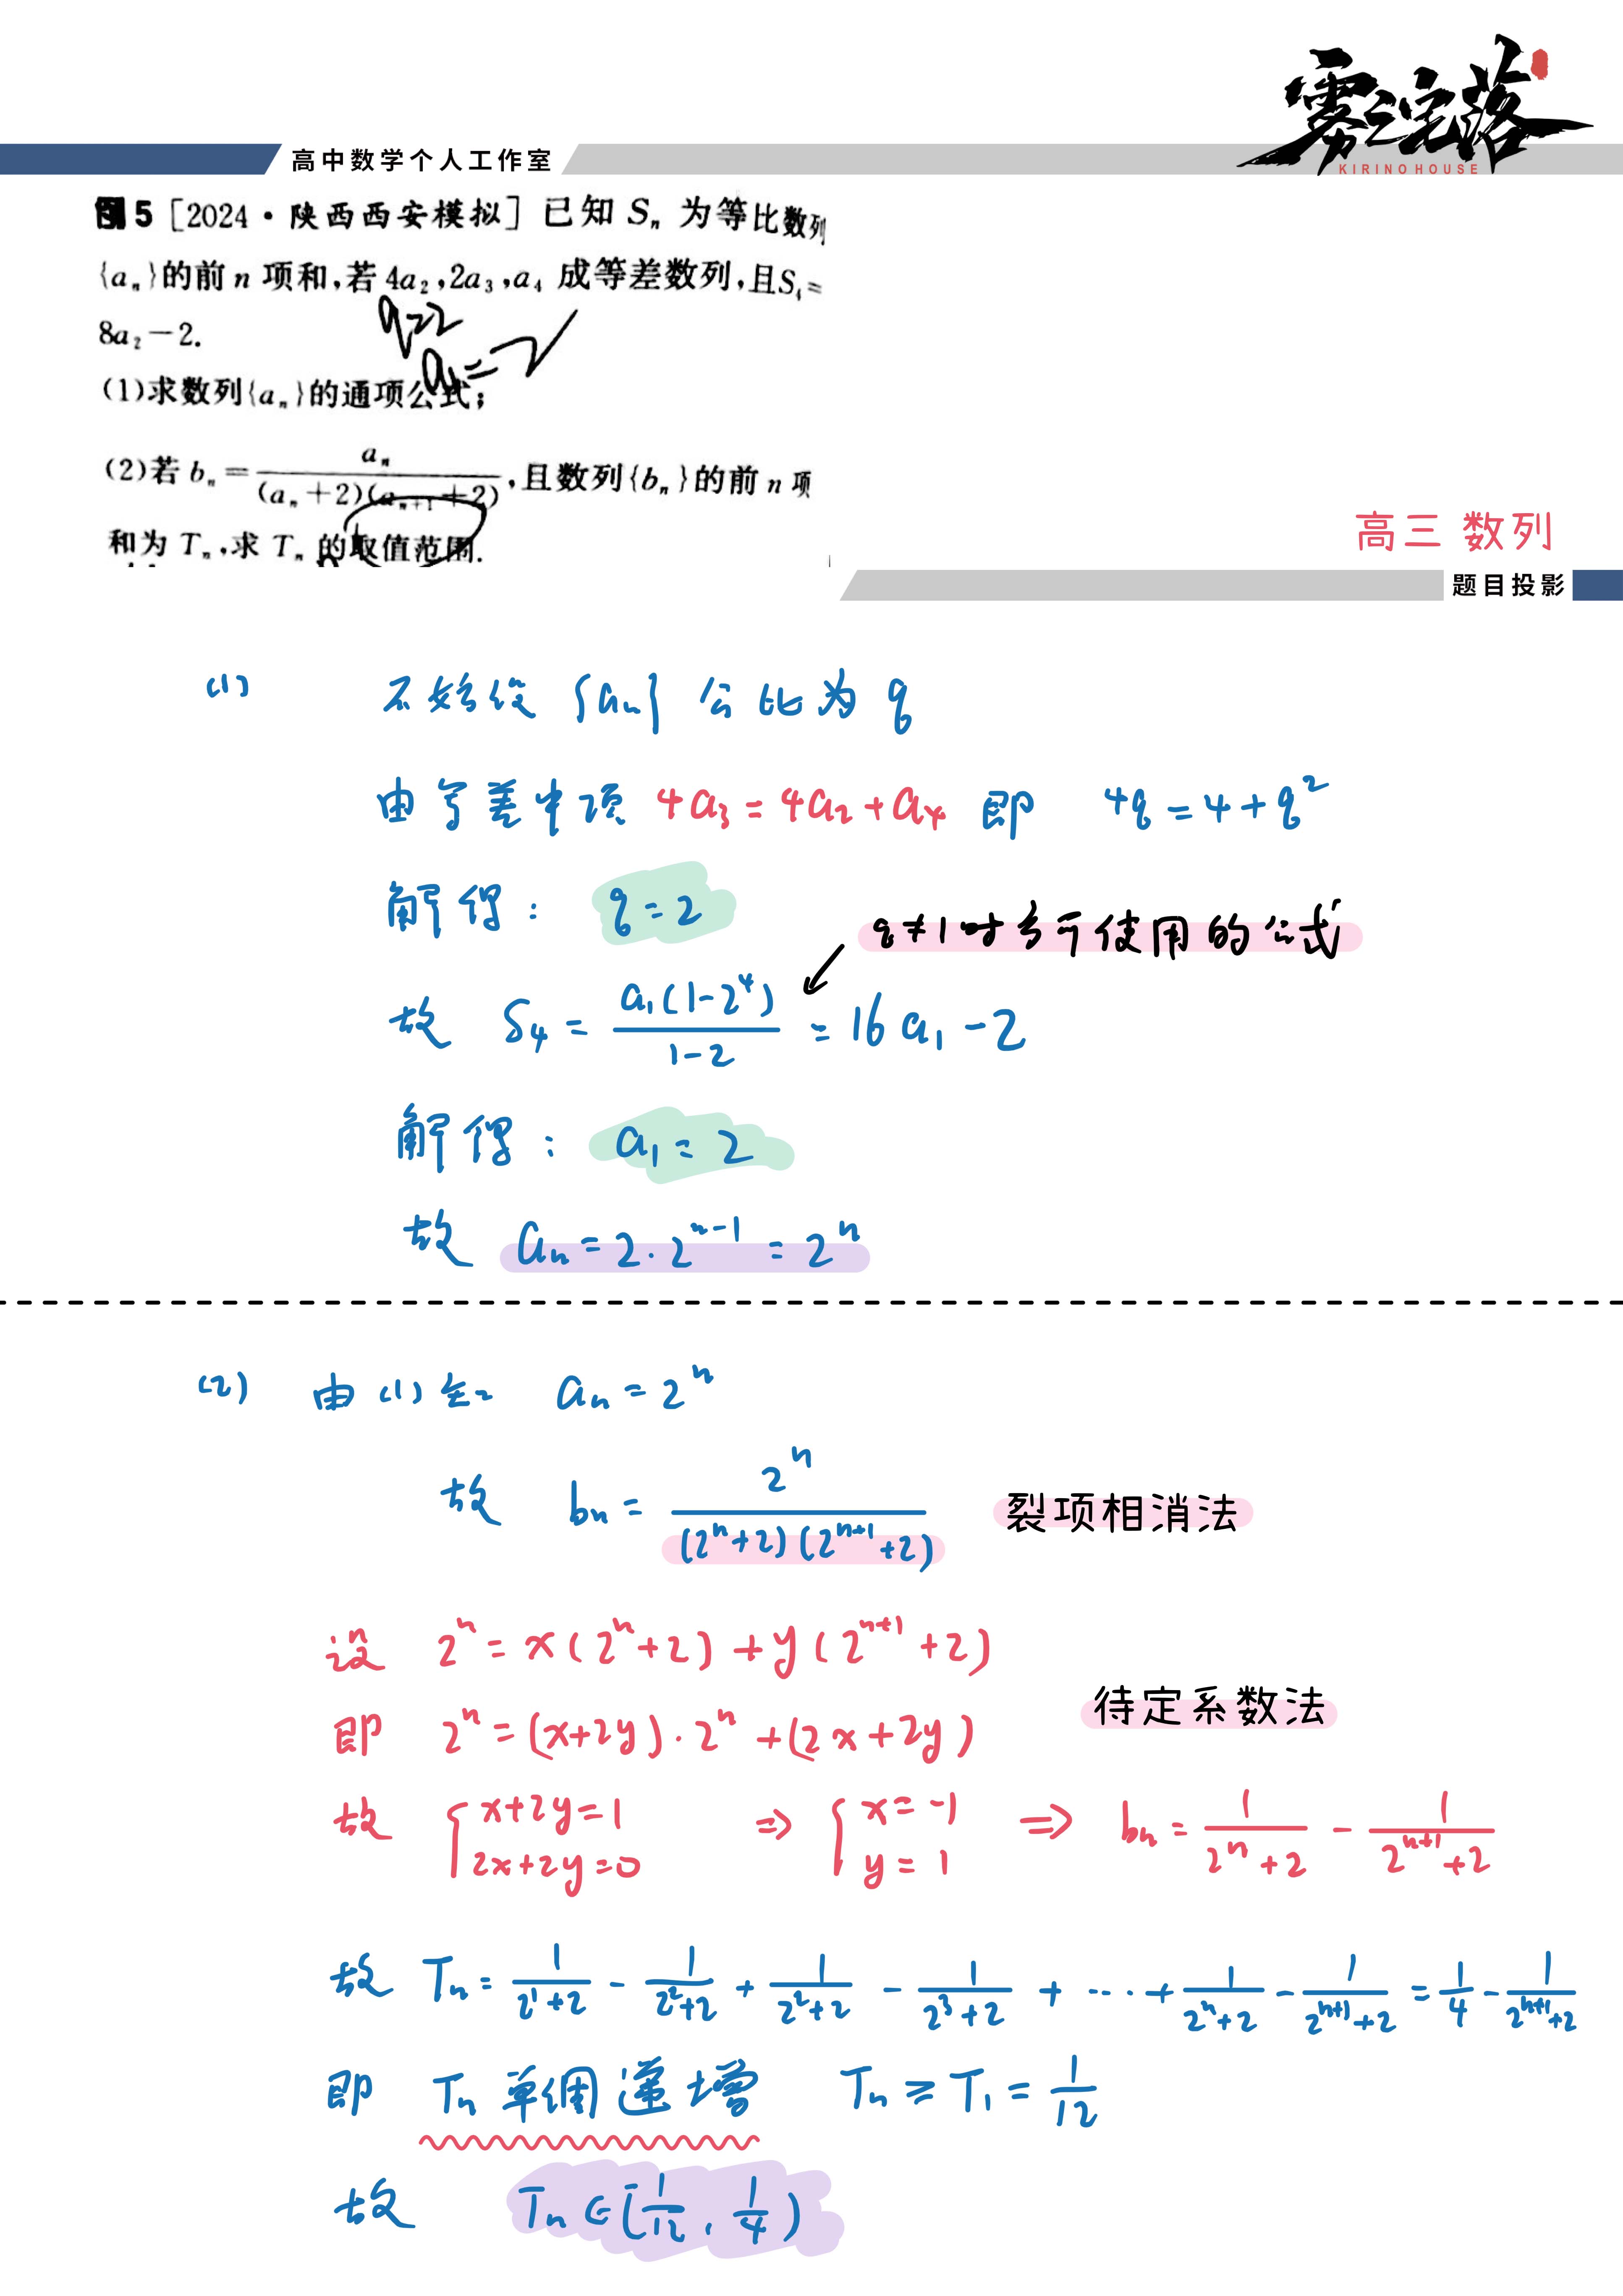 雾之宅落
KIRINO HOUSE
高中数学个人工作室
例5 [2024·陕西西安模拟] 已知 Sₙ 为等比数列
{aₙ}的前 n 项和,若 4a₂,2a₃,a₄ 成等差数列,且S₄=
8a₂-2.
q=2
a₁=2
(1)求数列{aₙ}的通项公式;
(2)若 bₙ=aₙ/((aₙ+2)(aₙ₊₁+2)),且数列{bₙ}的前 n 项
和为 Tₙ,求 Tₙ 的取值范围.
高三 数列
题目投影
(1) 不妨设 {aₙ} 公比为 q
由等差中项 4a₃=4a₂+a₄ 即 4q=4+q²
解得: q=2
q≠1时才可使用的公式
故 S₄=a₁(1-2⁴)/(1-2)=16a₁-2
解得: a₁=2
故 aₙ=2·2ⁿ⁻¹=2ⁿ
(2) 由(1)知 aₙ=2ⁿ
故 bₙ=2ⁿ/((2ⁿ+2)(2ⁿ⁺¹+2)) 裂项相消法
设 2ⁿ=x(2ⁿ+2)+y(2ⁿ⁺¹+2)
待定系数法
即 2ⁿ=(x+2y)·2ⁿ+(2x+2y)
故 {x+2y=1 2x+2y=0 ⇒ {x=-1 y=1 ⇒ bₙ=1/(2ⁿ+2)-1/(2ⁿ⁺¹+2)
故 Tₙ=1/(2¹+2)-1/(2²+2)+1/(2²+2)-1/(2³+2)+····+1/(2ⁿ+2)-1/(2ⁿ⁺¹+2)=1/4-1/(2ⁿ⁺¹+2)
即 Tₙ 单调递增 Tₙ≥T₁=1/12
故 Tₙ∈[1/12,1/4)